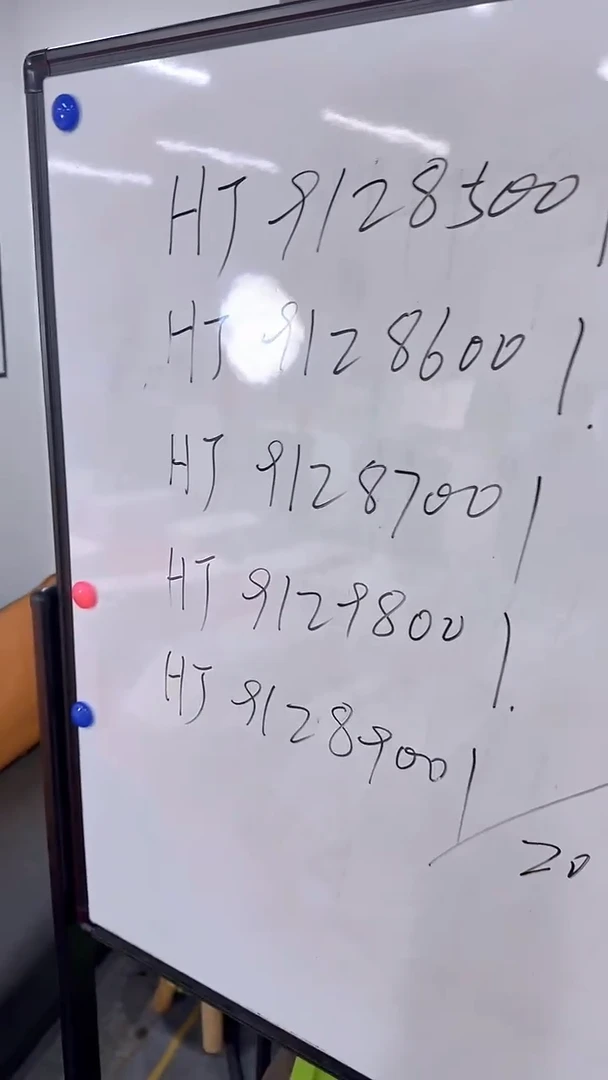 HJ 9128500
HJ 9128600 1.
HJ 9128700 1
HJ 9129800 1.
HJ 9128900 1
20